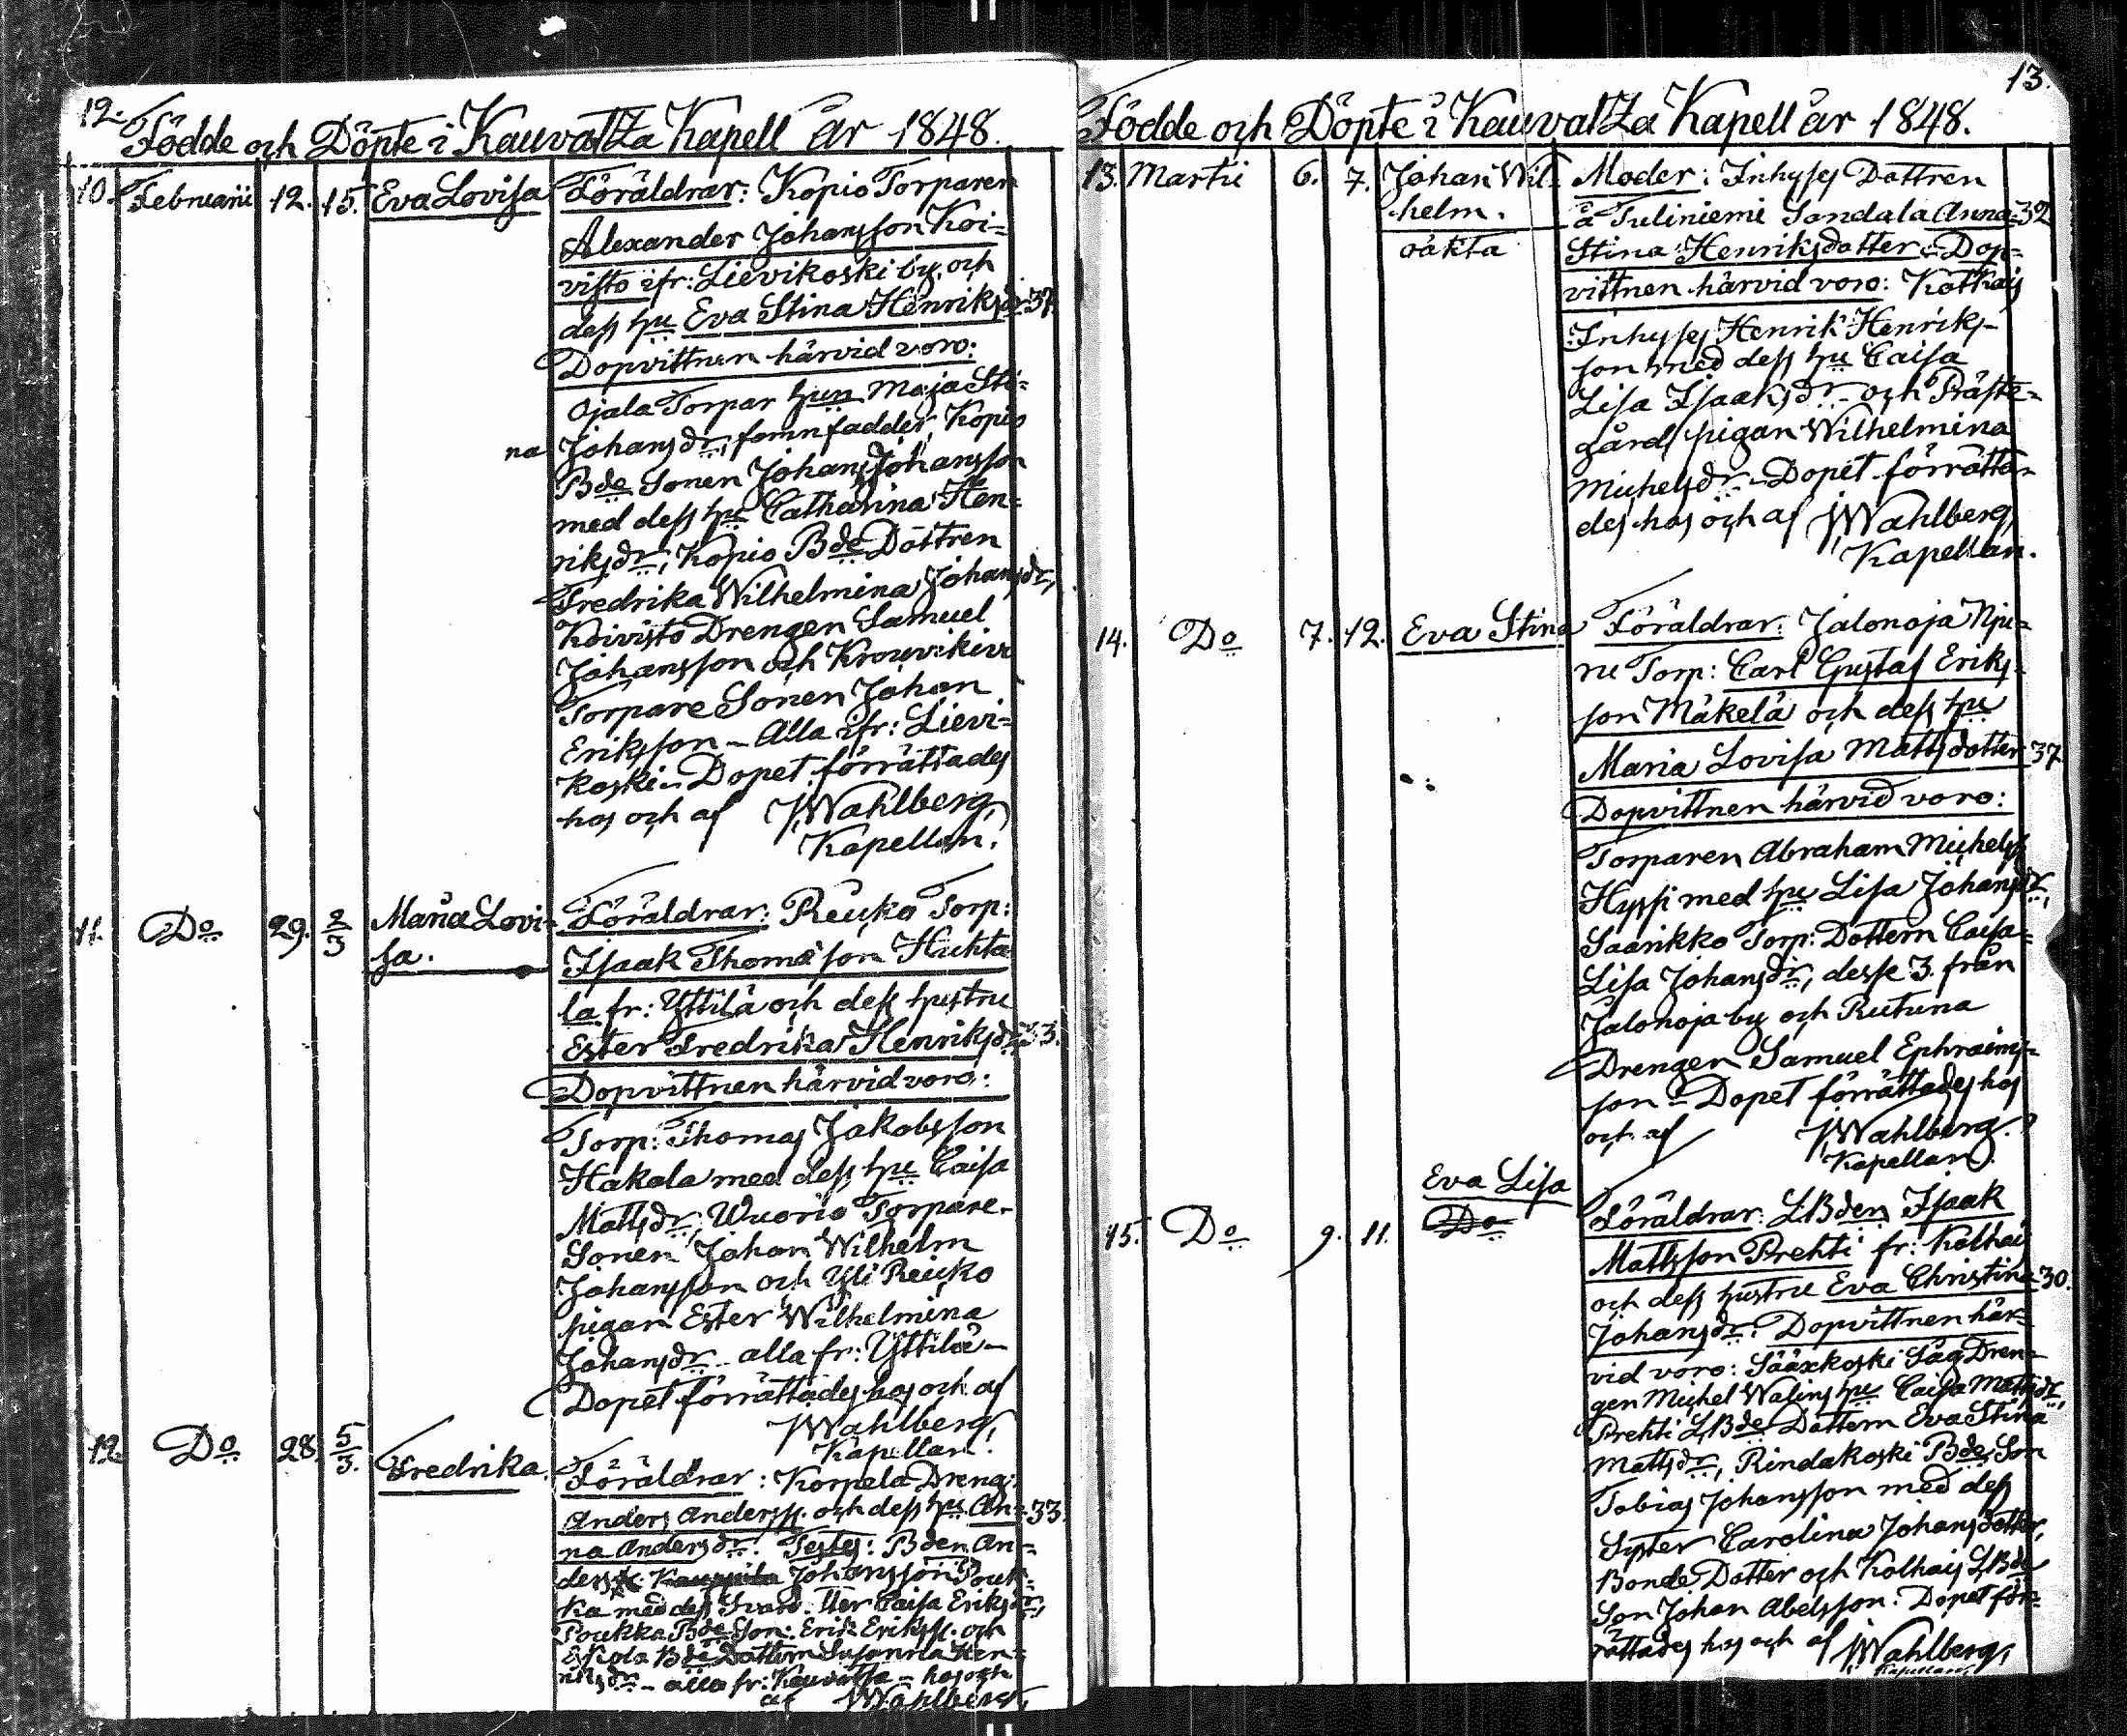 12.
Födde och Döpte i Kauvatza Kapell År 1848.
10. Februarii 12. 15. Eva Lovisa Föräldrar: Kopio Torparen
Alexander Johansson Koi=
visto ifr: Lievikoski by, och
dess hu Eva Stina Henriksdr. 37.
Dopvittnen härvid voro:
Ojala Torpar hun Maja Sti=
na Johansdr, somn fadder, Kopio
Bde Sonen Johan Johansson
med dess hu Catharina Hen=
riksdr, Kopio Bde Dottren
Fredrika Wilhelmina Johansdr,
Koivisto Drengen Samuel
Johansson och Krouvikivi
Torpare Sonen Johan
Eriksson – Alla ifr: Lievi=
koski – Dopet förrättades
hos och af JWahlberg,
Kapellan.
11. Do 29. 2/3 Maria Lovi= Föräldrar: Reuko Torp:
sa. Isaak Thomasson Huhta
la fr: Yttilä och dess hustru
Ester Fredrika Henriksdr. 33.
Dopvittnen härvid voro:
Torp: Thomas Jakobsson
Hakala med dess hu Caisa
Mattsdr, Wuorio Torpare-
Sonen Johan Wilhelm
Johansson och Yli Reuko
pigan Ester Wilhelmina
Johansdr – alla fr: Yttilä –
Dopet förrättades hos och af
JWahlberg,
Kapellan.
12. Do 28. 5/3. Fredrika. Föräldrar: Korpela Dreng:
Anders Anderss. och dess hu An= 33.
na Andersdr. Testes: Bden An=
ders Johansson Pouk=
ka med dess Caisa Eriksdr,
Poukka Bde Son: Erik Erikss. och
Bde Dottern Susanna Hen=
riksdr – alla fr: Kauvatza – hos och
af JWahlberg,
13.
Födde och Döpte i Kauvatza Kapell år 1848.
13. Martii 6. 7. Johan Wil= Moder: Inhyses Dottren
helm. å Tuliniemi Sandala Anna 32.
oäkta Stina Henriksdotter – Dop=
vittnen härvid voro: Kolkais
Inhyses Henrik Henriks-
son med dess hu Caisa
Lisa Isaaksdr – och Präste=
gårds pigan Wilhelmina
Michelsdr – Dopet förrätta=
des hos och af JWahlberg,
Kapellan.
14. Do 7. 12. Eva Stina Föräldrar: Jalonoja Npi=
ri Torp: Carl Gustaf Eriks-
son Mäkelä och dess hu
Maria Lovisa Mattsdotter 37
Dopvittnen härvid voro:
Torparen Abraham Michelss
Hyssi med hu Lisa Johansdr,
Saarikko Torp: Dottern Caisa=
Lisa Johansdr, desse 3. från
Jalonoja by och Rutuna
Drengen Samuel Ephraims-
son – Dopet förrättades hos
och af JWahlberg.
Kapellan.
Eva Lisa
15. Do 9. 11. Do Föräldrar: LBden Isaak
Mattsson Prehti fr: Kolkais
och dess hustru Eva Christina 30.
Johansdr: Dopvittnen här=
vid voro: Sääxkoski Såg Dren=
gen Michel Walins hu Caisa Mattsdr,
Prehti LBde Dottern Eva Stina
Mattsdr, Rindakoski Bde Son
Tobias Johansson med dess
Syster Carolina Johansdotter,
Bonde Dotter och Kolkais LBde
Son Johan Abelsson. Dopet för=
rättades hos och af JWahlberg,
Kapellan.